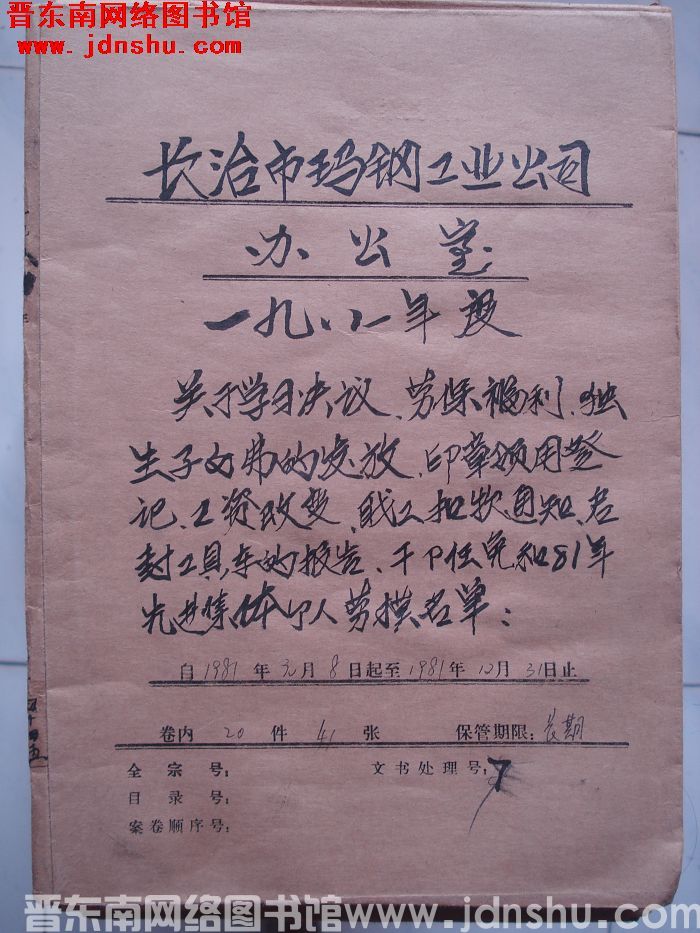 晋东南网络图书馆
www.jdnshu.com
长治市玛钢工业公司
办公室
一九八一年度
关于学习决议、劳保福利、独
生子女费的发放、印章领用登
记、工资改变、职工扣款通知、启
封工具车的报告、干卩任免和81年
先进集体个人劳模名单:
自1981年元月8日起至1981年12月31日止
卷内20件41张 保管期限:长期
全宗号: 文书处理号:7
目录号:
案卷顺序号:
晋东南网络图书馆www.jdnshu.com